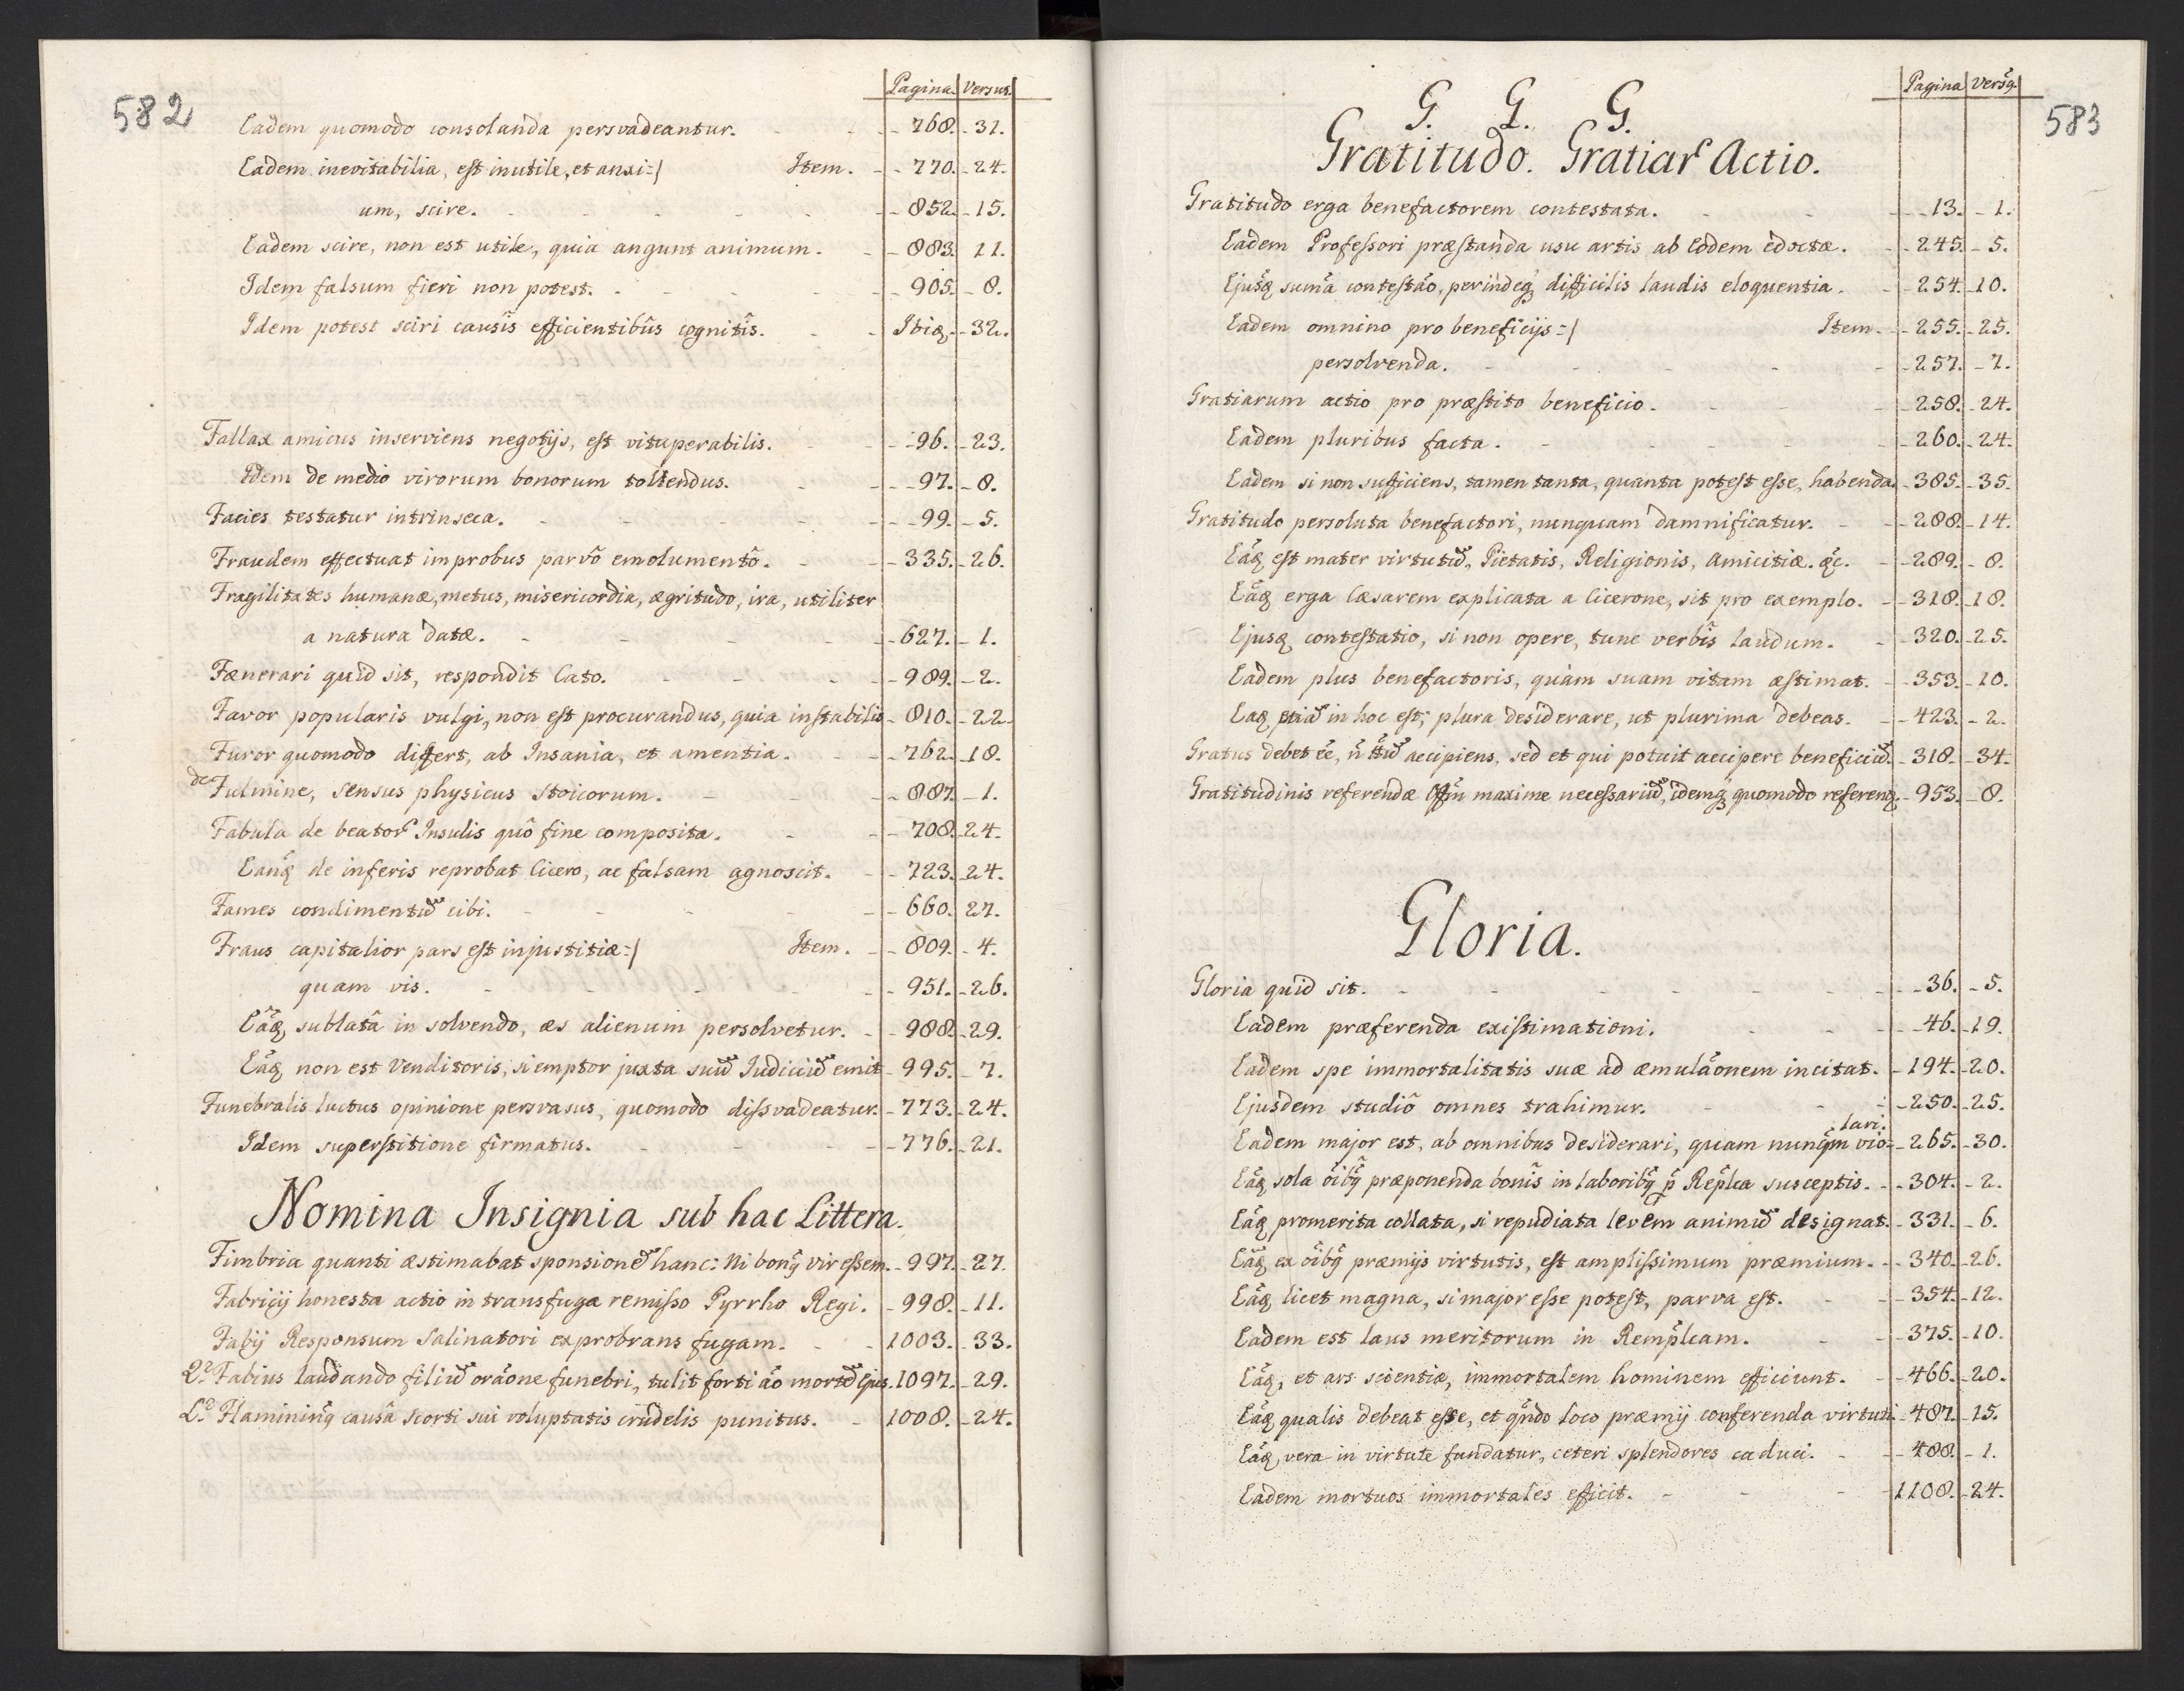 582
Pagina. Versus.
Eadem quomodo consolanda persvadeantur. - - - 768. - 31.
Eadem inevitabilia, est inutile, et anxi=/ Item. - - 770. - 24.
um, scire. - - - - - - 852. - 15.
Eadem scire, non est utile, quia angunt animum. - - 883. 11.
Idem falsum fieri non potest. - - - - - 905. - 8.
Idem potest sciri causîs efficientibûs cognitîs. - - Ibiq. - 32.
Fallax amicus inserviens negotijs, est vituperabilis. - - - 96. - 23.
Idem de medio virorum bonorum tollendus. - - - 97. - 8.
Facies testatur intrinseca. - - - - - 99. - 5.
Fraudem effectuat improbus parvô emolumentô. - - - 335. - 26.
Fragilitates humanæ, metus, misericordia, ægritudo, ira, utiliter
a natura datæ. - - - - - 627. - 1.
Fænerari quid sit, respondit Cato. - - - - 989. - 2.
Favor popularis vulgi, non est procurandus, quia instabilis - 810. - 22.
Furor quomodo differt, ab Insania, et amentia. - - - 762. 18.
de Fulmine, sensus physicus Stoicorum. - - - - 887. - 1.
Fabula de beator Insulis quô fine composita. - - - 708. 24.
Eanq de inferis reprobat Cicero, ac falsam agnoscit. - - 723. 24.
Fames condimentũ cibi. - - - - - 660. 27.
Fraus capitalior pars est injustitiæ=/ Item. - - 809. - 4.
quam vis. - - - - - - 951. - 26.
Eâq sublatâ in solvendo, æs alienum persolvetur. - - 988. - 29.
Eãq non est Venditoris, si emptor juxta suũ Iudiciũ emit - 995. - 7.
Funebralis luctus opinione persvasus, quomodo dissvadeatur. - 773. - 24.
Idem superstitione firmatus. - - - - 776. - 21.
Nomina Insignia sub hac Littera.
Fimbria quanti æstimabat sponsionẽ hanc: Ni bonq vir essem. - 997. - 27.
Fabricij honesta actio in transfuga remisso Pyrrho Regi. - 998. - 11.
Fabij Responsum Salinatori exprobrans fugam. - - 1003. - 33.
Q.s Fabius laudando filiũ orãone funebri, tulit forti ão mortẽ Ejus. 1097. - 29.
L.s Flamininq causâ scorti sui voluptatis crudelis punitus. - 1008. - 24.
583
Pagina Versq.
G. G. G.
Gratitudo. Gratiar Actio.
Gratitudo erga benefactorem contestata. - - - - 13. - 1.
Eadem Professori præstanda usu artis ab Eodem edoctæ. - - 245. - 5.
Ejusq sum̃a contestão, perindeq difficilis laudis eloquentia. - - 254. - 10.
Eadem omnino pro beneficijs=/ Item. - - 255. - 25.
persolvenda. - - - - - - 257. - 7.
Gratiarum actio pro præstito beneficio. - - - - 258. - 24.
Eadem pluribus facta. - - - - - 260. - 24.
Eadem si non sufficiens, tamen tanta, quanta potest esse, habenda. - 385. - 35.
Gratitudo persoluta benefactori, nunquam damnificatur. - - 288. - 14.
Eãq est mater virtutũ, Pietatis, Religionis, Amicitiæ. &c. - - 289. - 8.
Eãq erga Cæsarem explicata a Cicerone, sit pro exemplo. - - 318. - 18.
Ejusq contestatio, si non opere, tunc verbîs laudum. - - 320. - 25.
Eadem plus benefactoris, quàm suam vitam æstimat. - - 353. - 10.
Eaq etiã in hoc est; plura desiderare, ut plurima debeas. - - 423. - 2.
Gratus debet ẽe, ñ tm̃ accipiens, sed et qui potuit accipere beneficiũ. - 318. - 34.
Gratitudinis referendæ Offm maxime necessariũ, idemq quomodo referenq. - 953. - 8.
Gloria.
Gloria quid sit. - - - - - - - 36. - 5.
Eadem præferenda existimationi. - - - - 46. - 19.
Eadem spe immortalitatis suæ ad æmulãonem incitat. - 194. - 20.
Ejusdem studiô omnes trahimur. - - - - 250. - 25.
lari.
Eadem major est, ab omnibus desiderari, quam nunqm vio= - 265. - 30.
Eãq sola õibq præponenda bonîs in laboribq p Replca susceptis. - - 304. - 2.
Eãq promerita collata, si repudiata levem animũ designat. - 331. - 6.
Eãq ex õibq præmijs virtutis, est amplissimum præmium. - - 340. - 26.
Eãq licet magna, si major esse potest, parva est. - - - 354. - 12.
Eadem est laus meritorum in Remplcam. - - - 375. - 10.
Eãq, et ars scientiæ, immortalem hominem efficiunt. - - 466. - 20.
Eãq qualis debeat esse, et qndo loco præmij conferenda virtuti. - 487. - 15.
Eãq vera in virtute fundatur, ceteri splendores caduci. - - 488. - 1.
Eadem mortuos immortales efficit. - - - - 1108. - 24.